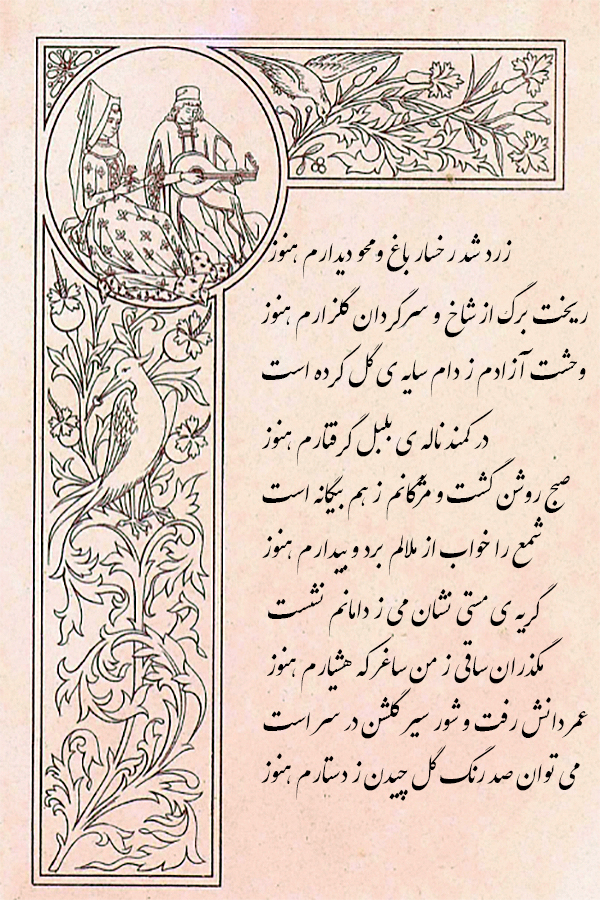 زرد شد رخسار باغ ومحو دیدارم هنوز
ریخت برگ از شاخ و سرگردان گلزارم هنوز
وحشت آزادم ز دام سایه ی گل کرده است
در کمند ناله ی بلبل گرفتارم هنوز
صبح روشن گشت و مژگانم ز هم بیگانه است
شمع را خواب از ملالم برد و بیدارم هنوز
گریه ی مستی نشان می ز دامانم نشست
مگذران ساقی ز من ساغر که هشیارم هنوز
عمر دانش رفت و شور سیر گلشن در سر است
می توان صد رنگ گل چیدن ز دستارم هنوز